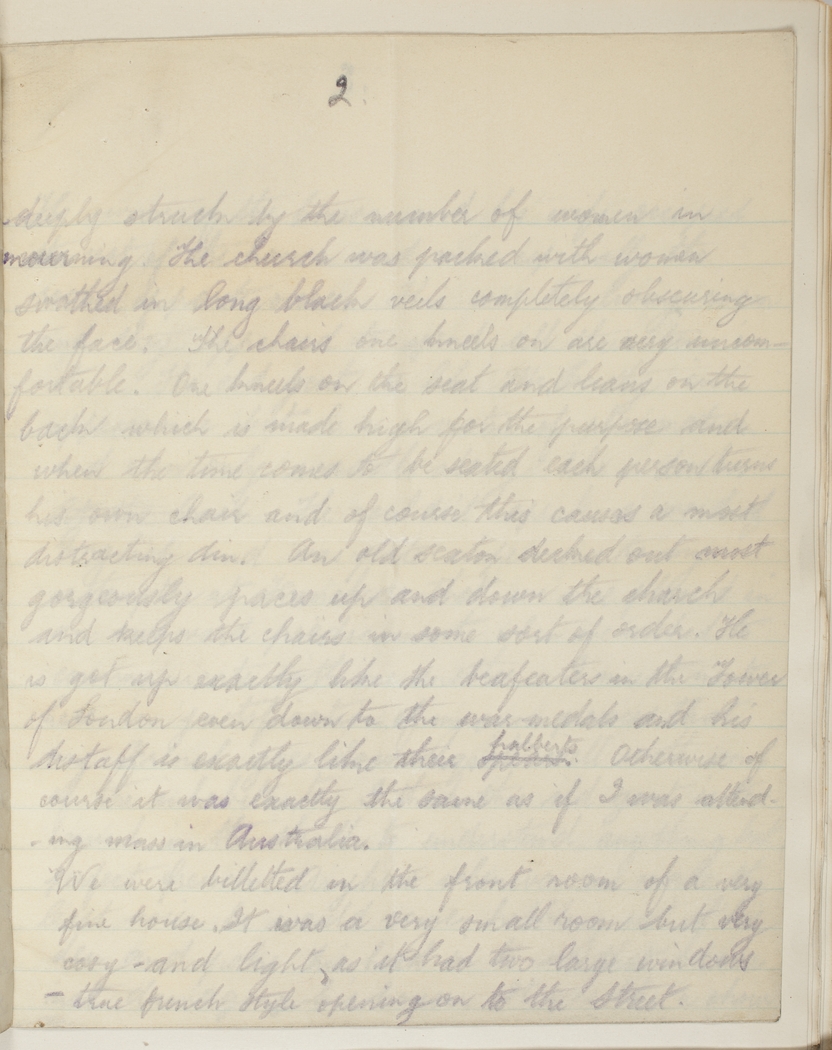 2.
deeply struck by the number of women in
mourning. The church was packed with women
swathed in long black veils completely obscuring
the face. The chairs one kneels on are very uncom-
fortable. One kneels on the seat and leans on the
back which is made high for the purpose and
when the time comes to be seated each person turns
his own chair and of course this causes a most
distracting din. An old sexton decked out most
gorgeously paces up and down the church
and keeps the chairs in some sort of order. He
is got up exactly like the beafeaters in the Tower
of London even down to the war-medals and his
distaff is exactly like their halberts. Otherwise of
course it was exactly the same as if I was attend-
-ing mass in Australia.
We were billetted in the front room of a very
fine house. It was a very small room but very
cosy - and light, as it had two large windows
- true french style opening on to the Street.